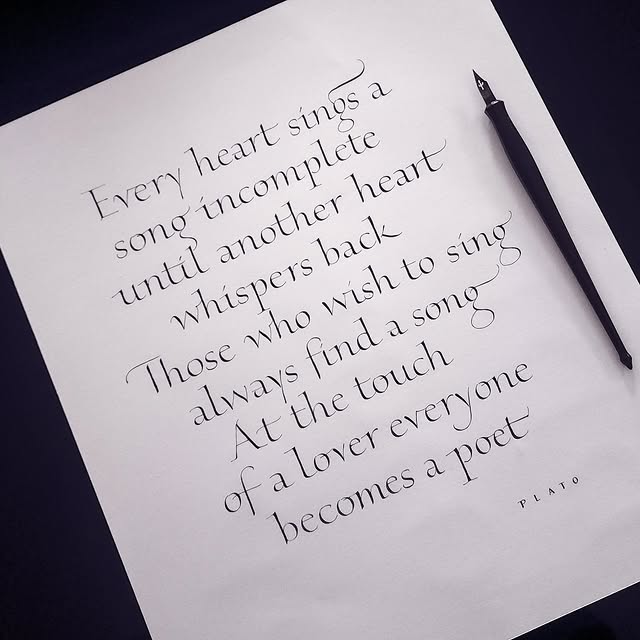 Every heart sings a
song incomplete
until another heart
whispers back
Those who wish to sing
always find a song
At the touch
of a lover everyone
becomes a poet
PLATO